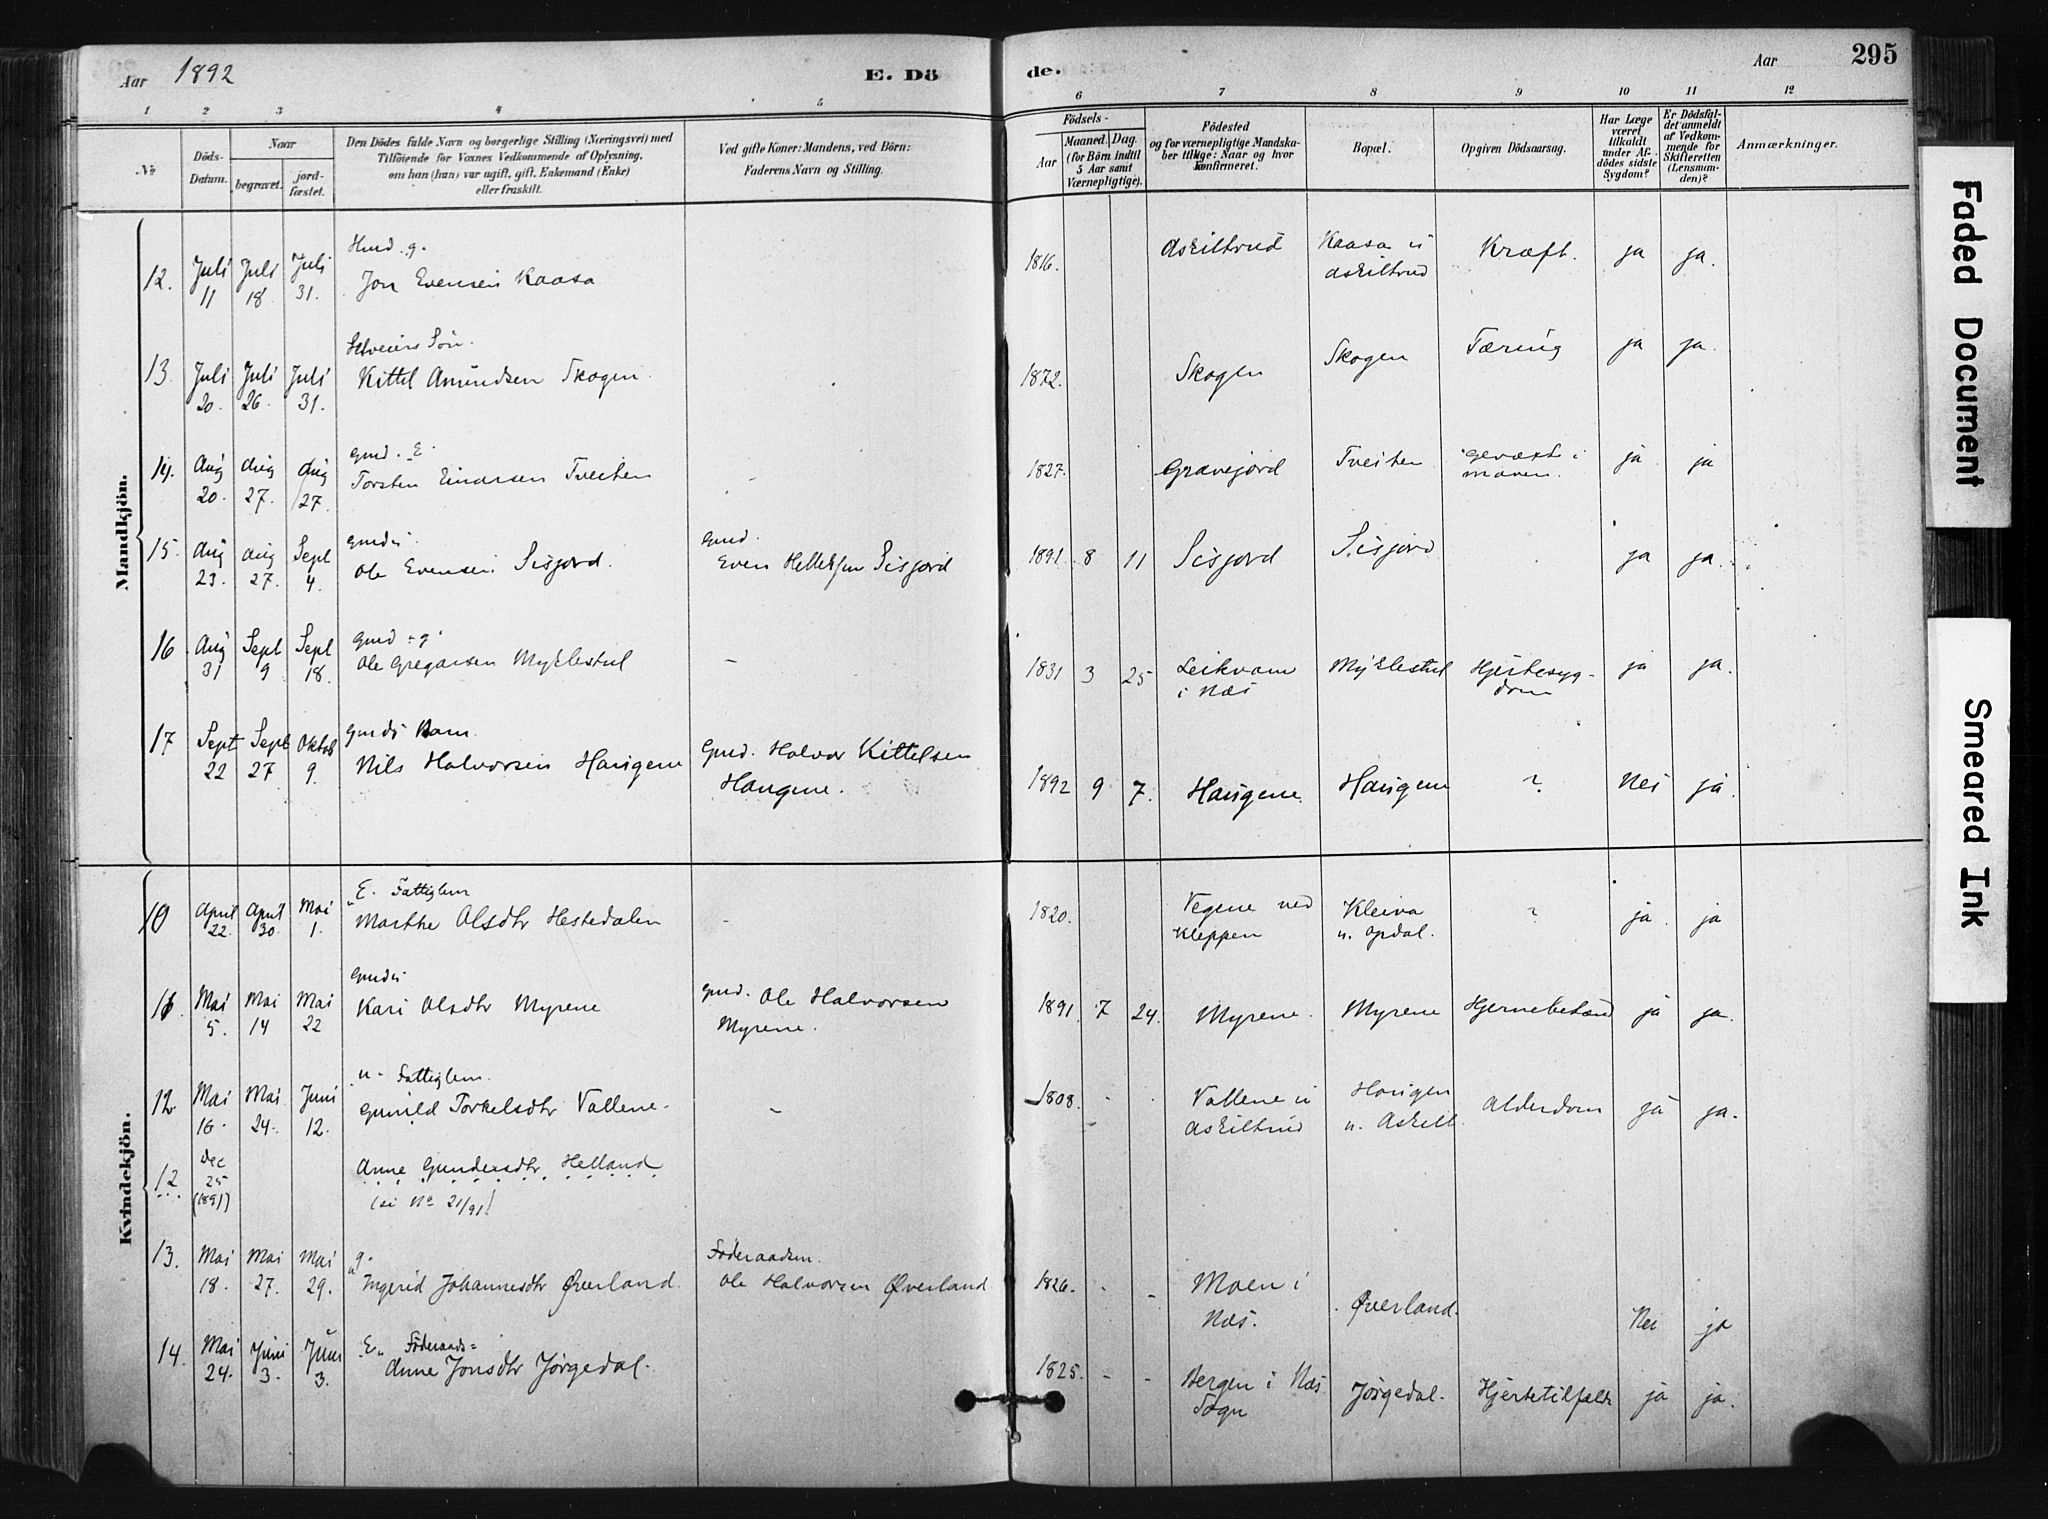 Aar 1892
E. Döde.
Aar
295
1 2 3 4 5 6 7 8 9 10 11 12
No
Döds-Datum.
Naar
begravet.
jord-fæstet.
Den Dödes fulde Navn og borgerlige Stilling (Næringsvei) med
Tilföiende for Voxnes Vedkommende af Oplysning,
om han (hun) var ugift, gift, Enkemand (Enke)
eller fraskilt.
Ved gifte Koner: Mandens, ved Börn:
Faderens Navn og Stilling.
Födsels-
Aar
Maaned. Dag.
(for Börn indtil
5 Aar samt
Værnepligtige).
Födested
og for værnepligtige Mandska-
ber tillige: Naar og hvor
Konfirmeret.
Bopæl.
Opgiven Dödsaarsag.
Har Læge
været
tilkaldt
under Af-
dödes sidste
Sygdom?
Er Dödsfal-
det anmeldt
af Vedkom-
mende for
Skifteretten
(Lensman-
den)?
Anmærkninger.
Mandkjön.
Hmd. g.
12. Juli 11 Juli 18 Juli 31. Jon Evensen Kaasa 1816. Askiltrud Kaasa u askiltrud Kræft. ja ja.
Selveiers Sön.
13. Juli 20. Juli 26. Juli 31. Kittel Amundsen Skogen. 1872. Skogen Skogen Tæring ja ja.
gmd. E.
14. Aug 20. Aug 27. Aug 27. Torsten Einarsen Tveiten - 1827. Gravejord Tveiten gevæxt i maven. ja ja
gmds
15. Aug 23. Aug 27. Sept 4. Ole Evensen Sisjord. gmd. Even Helleksen Sisjord 1891. 8 11 Sisjord Sisjord ja ja.
gmd - g.
16 Aug 31 Sept 9 Sept 18. Ole Gregarsen Myklestul - 1831 3 25 Leikvam i Næs Myklestul Hjertesyg-dom ja ja.
gmds Barn.
17 Sept 22 Sept 27 Oktob 9. Nils Halvorsen Haugene Gmd. Halvor Kittelsen Haugene. 1892 9 7. Haugene. Haugene ? Nei ja.
Kvindekjön.
E. Fattiglem
10 April 22. April 30. Mai 1. Marthe Olsdtr Hestedalen - 1820. Vegene ved Kleppen Kleiva u. Opdal. ? ja. ja
gmds
11. Mai 5. Mai 14 Mai 22 Kari Olsdtr Myrene gmd. Ole Halvorsen Myrene. 1891. 7 24. Myrene. Myrene Hjernebetænd ja ja.
u - Fattiglem.
12 Mai 16. Mai 24. Juni 12. Gunild Torkelsdtr Vallene. - 1808. Vallene u Askiltrud Haugen u. Askilt. Alderdom ja ja.
12 Dec 25 (1891) Anne Gundersdtr Helland
(se No 21/91)
g.
13. Mai 18. Mai 27. Mai 29. Ingerid Johannesdtr Øverland. Föderaadsm. Ole Halvorsen Øverland 1826. - - Moen i Næs. Øverland. Nei ja
E. Föderaads=
14. Mai 24. Juni 3. Juni 3. Anne Jonsdtr Jørgedal. 1825. - - Bergen i Næs Sogn Jørgedal. Hjertetilfælde ja ja.
Faded Document
Smeared Ink